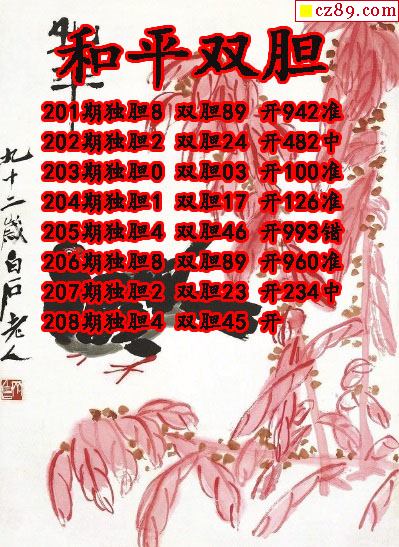 cz89.com
和平
和平双胆
201期独胆8 双胆89 开942准
202期独胆2 双胆24 开482中
203期独胆0 双胆03 开100准
204期独胆1 双胆17 开126准
205期独胆4 双胆46 开993错
206期独胆8 双胆89 开960准
207期独胆2 双胆23 开234中
208期独胆4 双胆45 开
九十二岁白石老人